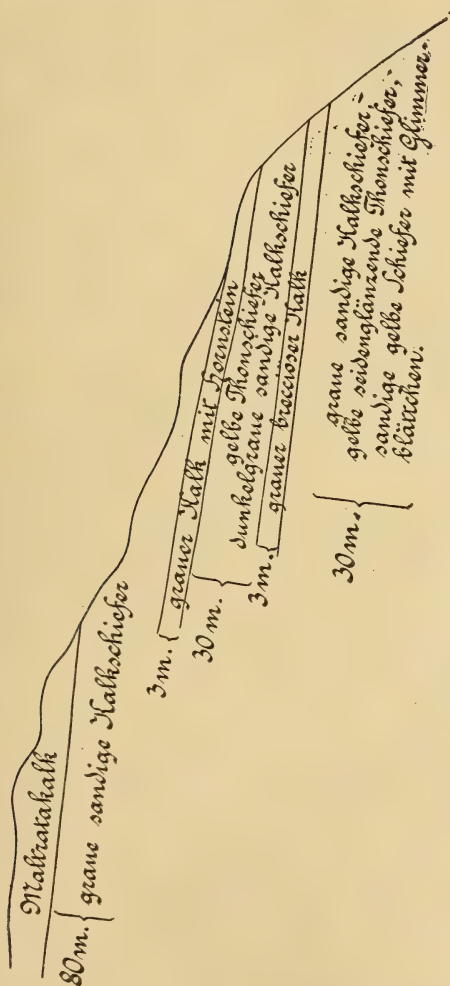 Maltratakalk
80 m. { graue sandige Kalkschiefer
3 m. { grauer Kalk mit Hornstein
30 m. { gelbe Thonschiefer
dunkelgraue sandige Kalkschiefer
3 m. { grauer brecciöser Kalk
30 m. { graue sandige Kalkschiefer,-
gelbe seidenglänzende Thonschiefer,-
sandige gelbe Schiefer mit Glimmer-
blättchen.